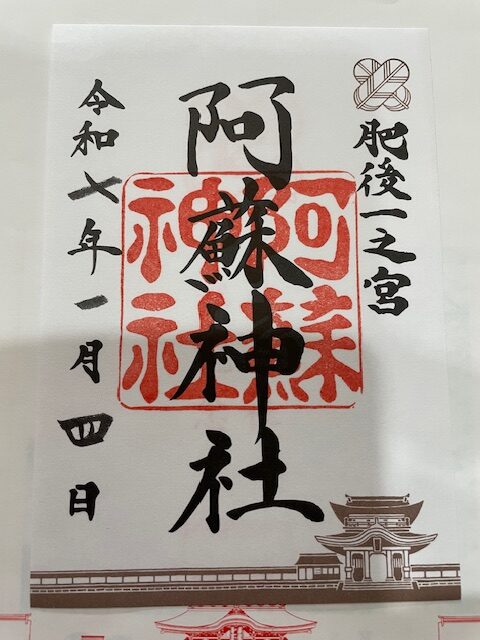 肥後一之宮
阿蘇神社
阿蘇
神社
令和七年一月四日